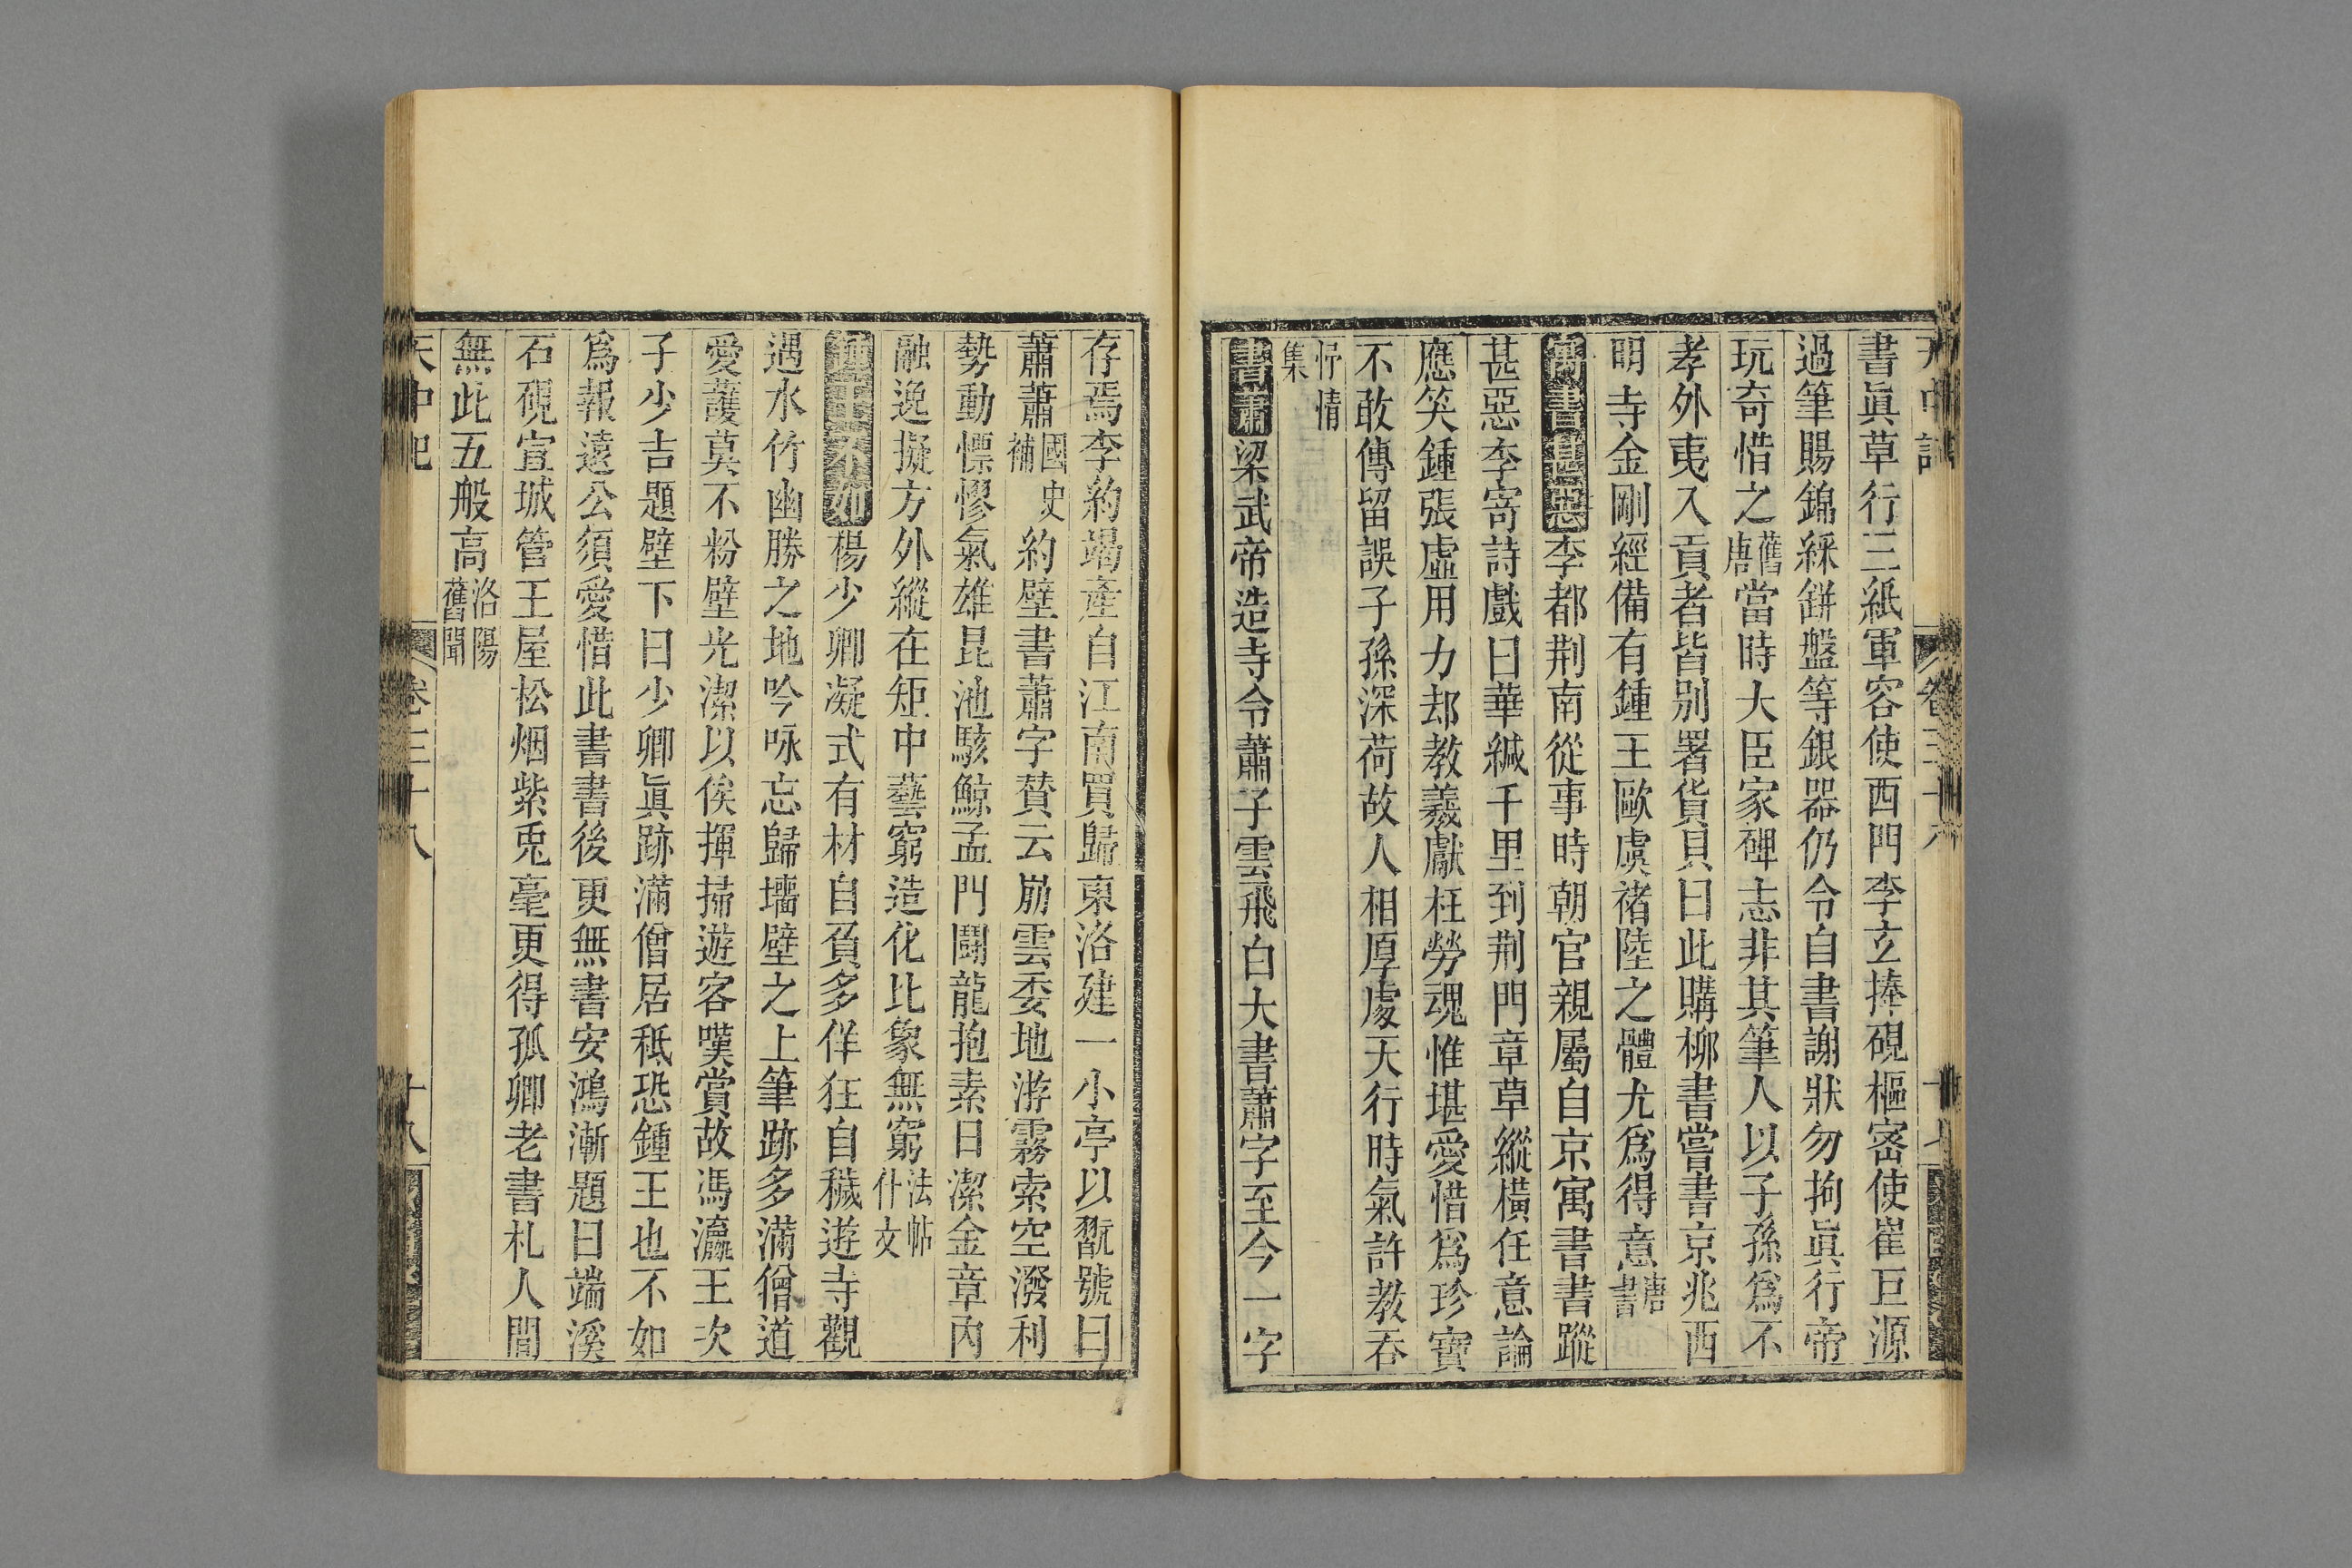 書眞草行三紙軍容使西門李玄捧硯樞密使崔巨源
過筆賜錦綵鉼盤等銀器仍令自書謝狀勿拘眞行帝
玩奇惜之舊唐當時大臣家碑志非其筆人以子孫爲不
孝外夷入貢者皆別署貨貝曰此購柳書嘗書京兆西
明寺金剛經備有鍾王歐虞褚陸之體尤爲得意唐書
寓書甚惡李都荆南從事時朝官親屬自京寓書書蹤
甚惡李寄詩戲曰華緘千里到荆門章草縱橫任意論
應笑鍾張虛用力却教羲獻枉勞魂惟堪愛惜爲珍寶
不敢傳留誤子孫深荷故人相厚處天行時氣許教吞
抒情集
書蕭梁武帝造寺令蕭子雲飛白大書蕭字至今一字
存焉李約竭產自江南買歸東洛建一小亭以翫號曰
蕭蕭國史補 約壁書蕭字賛云崩雲委地游霧索空潑利
勢動慓慘氣雄昆池駭鯨孟門鬪龍抱素日潔金章內
融逸擬方外縱在矩中藝窮造化比象無窮法帖什文
鍾王不如楊少卿凝式有材自負多佯狂自穢遊寺觀
遇水竹幽勝之地吟咏忘歸墻壁之上筆跡多滿僧道
愛護莫不粉壁光潔以俟揮掃遊客嘆賞故馮瀛王次
子少吉題壁下曰少卿眞跡滿僧居秪恐鍾王也不如
爲報遠公須愛惜此書書後更無書安鴻漸題曰端溪
石硯宣城管王屋松烟紫兎毫更得孤卿老書札人間
無此五般高洛陽舊聞
天中記 卷三十八 十八